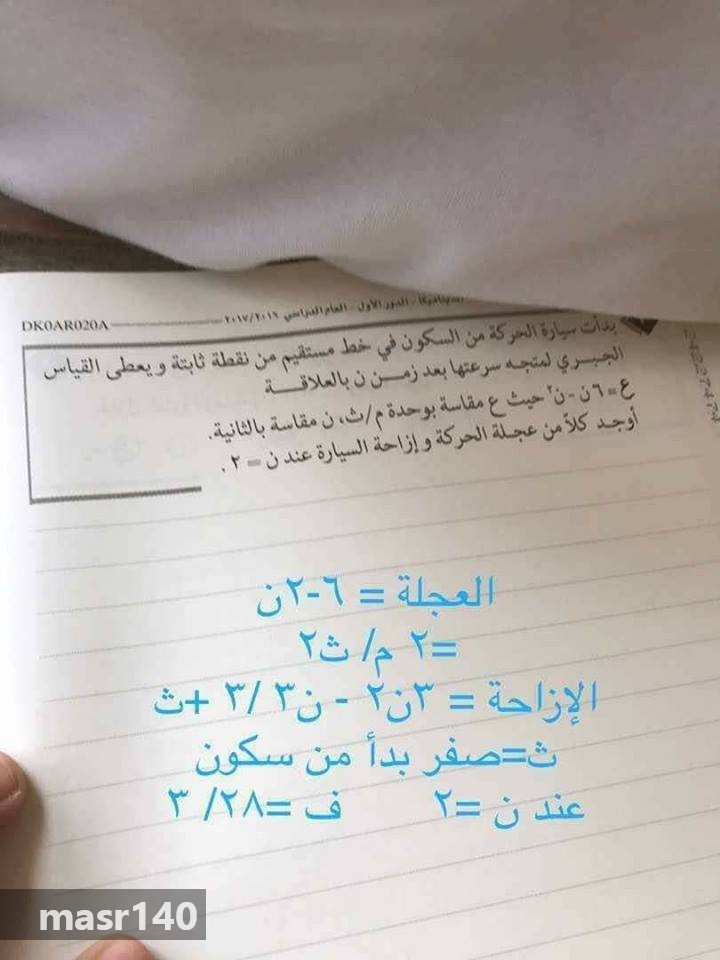 DK0AR020A ديناميكا - الدور الأول - العام الدراسي ٢٠١٧/٢٠١٦
بدأت سيارة الحركة من السكون في خط مستقيم من نقطة ثابتة ويعطى القياس
الجبري لمتجه سرعتها بعد زمن ن بالعلاقة
ع = ٦ن - ن٢ حيث ع مقاسة بوحدة م/ث، ن مقاسة بالثانية.
أوجد كلاً من عجلة الحركة وإزاحة السيارة عند ن = ٢ .
العجلة = ٦-٢ن
=٢ م/ ث٢
الإزاحة = ٣ن٢ - ن٣ /٣ +ث
ث=صفر بدأ من سكون
عند ن =٢ ف =٢٨/ ٣
masr140